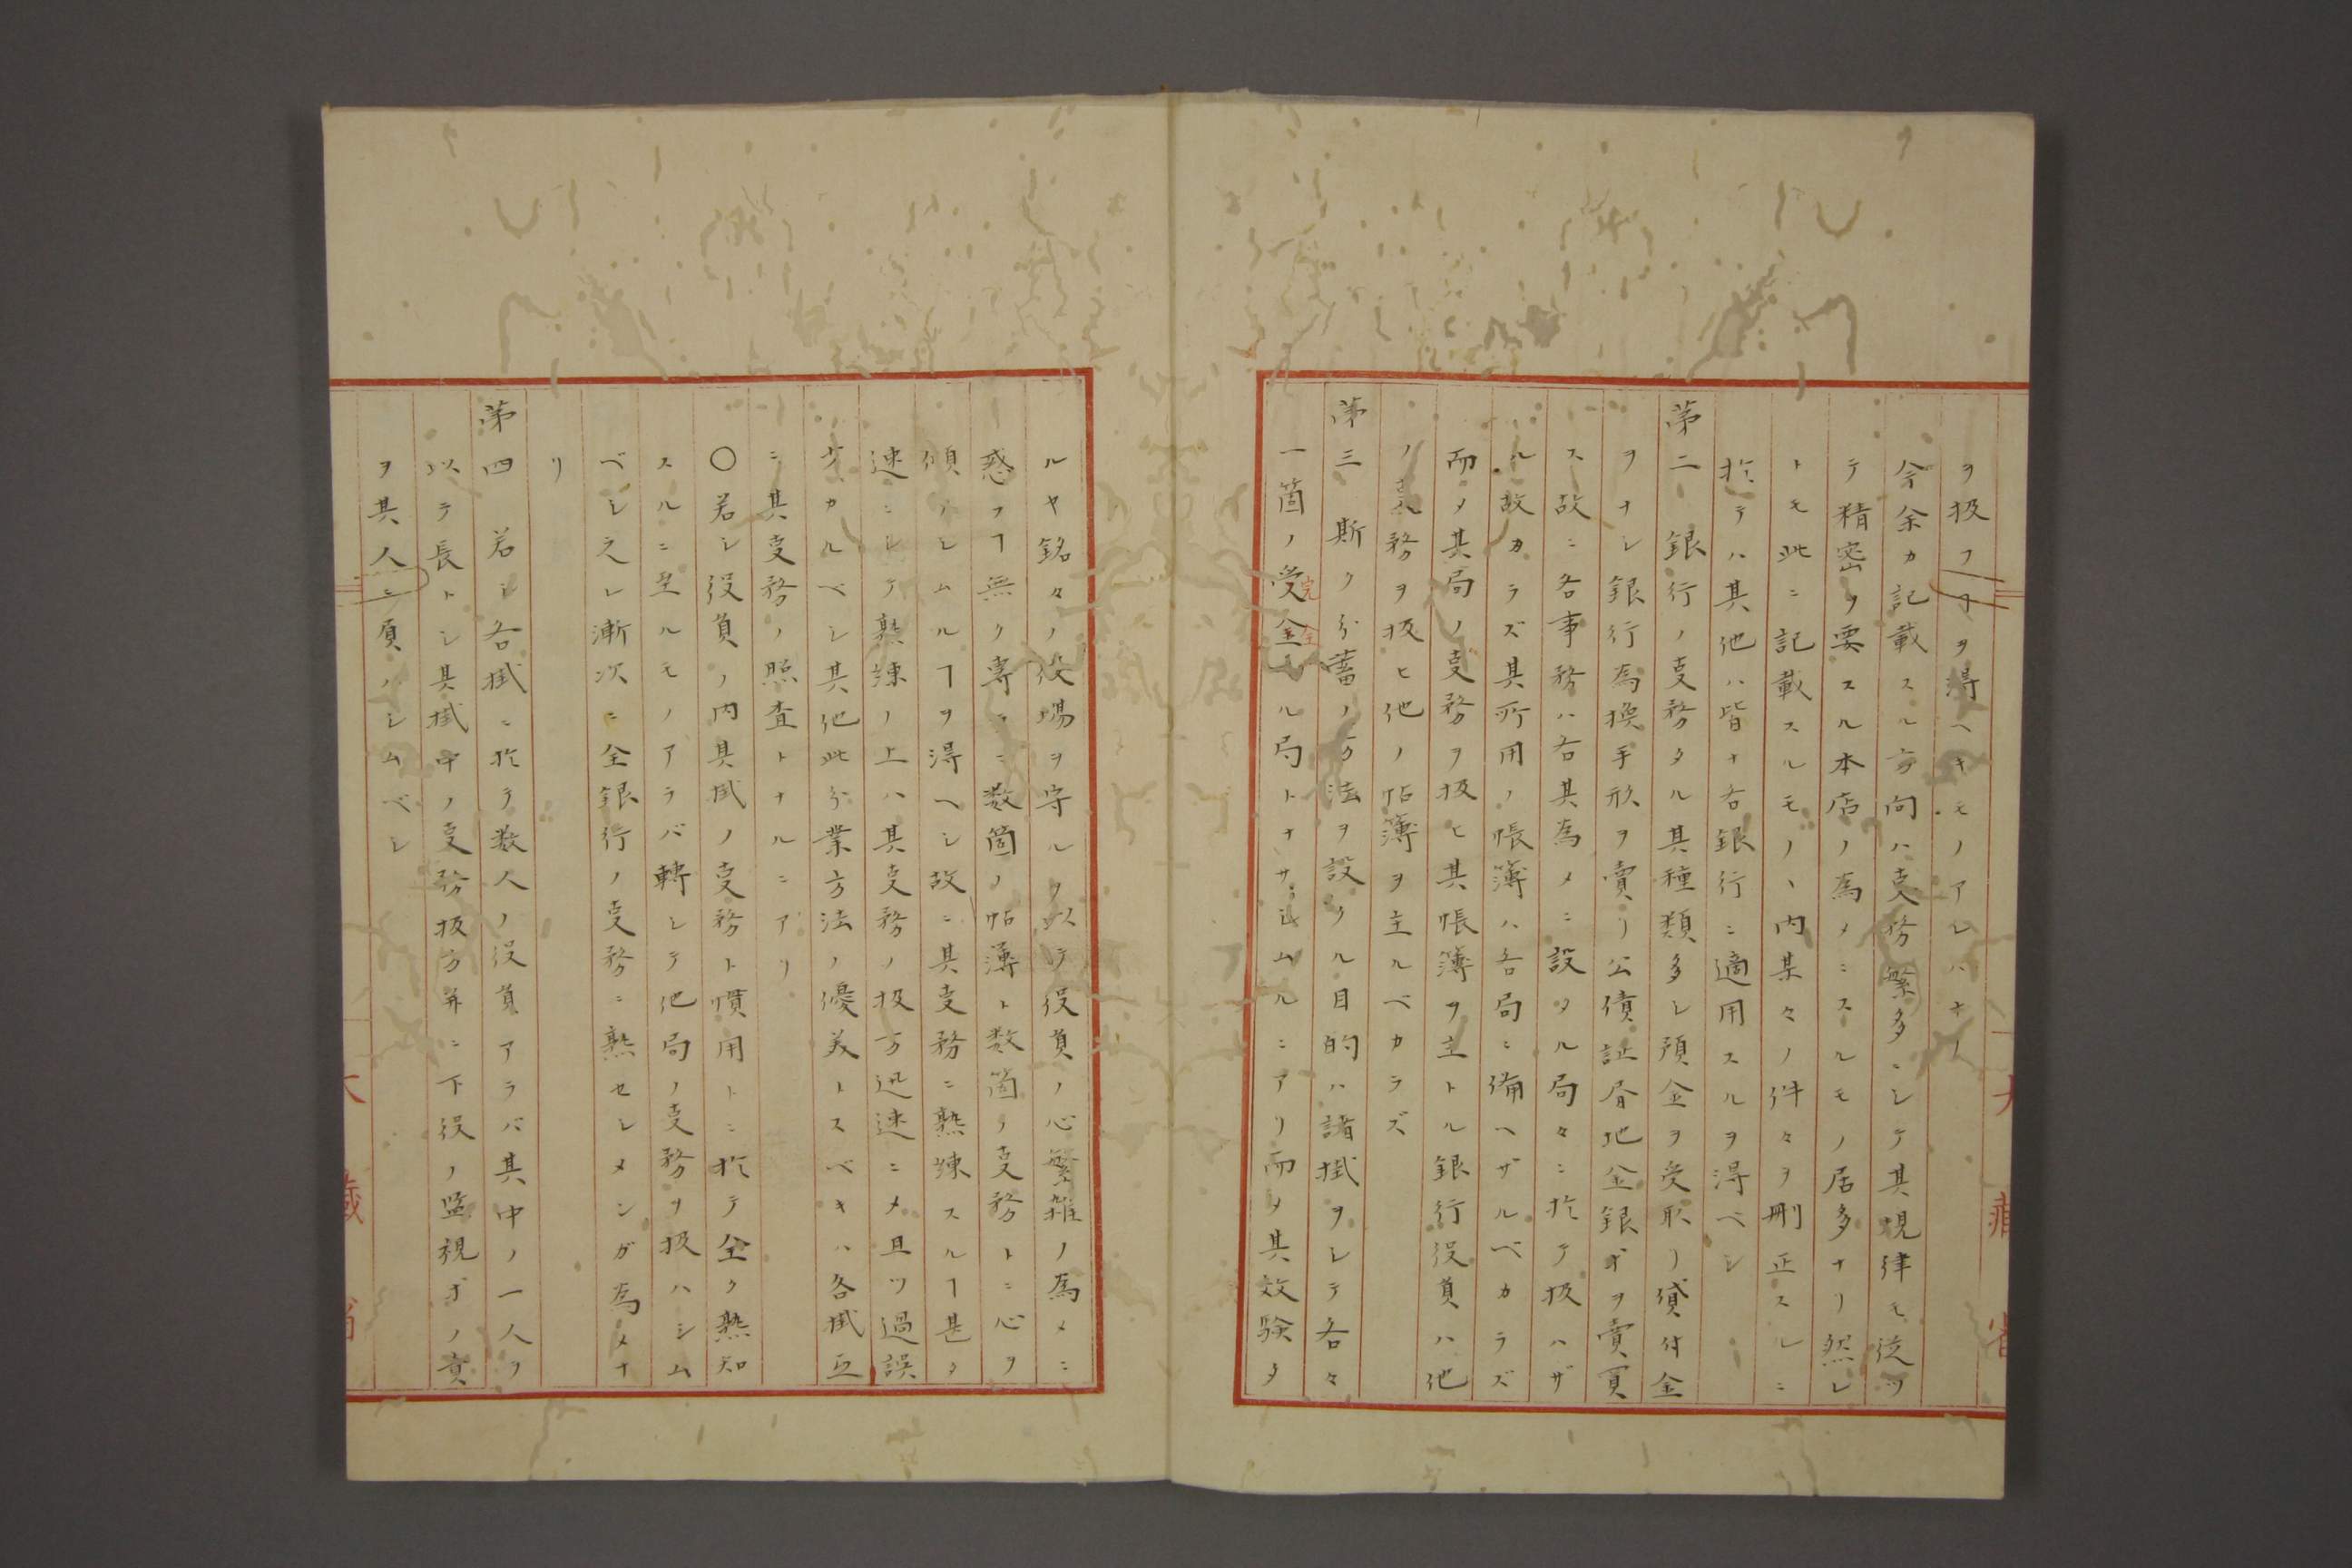 ヲ扱フヿヲ得ヘキモノアレハナリ
今余カ記載スル方向ハ支務繁多ニシテ其規律モ從ツ
テ精密ヲ要スル本店ノ為メニスルモノ居多ナリ然レ
トモ此ニ記載スルモノヽ内某々ノ件々ヲ刪正スレニ
於テハ其他ハ皆ナ各銀行ニ適用スルヲ得ベシ
第二 銀行ノ支務タル其種類多シ預金ヲ受取リ貸付金
ヲナシ銀行為換手形ヲ賣リ公債証書地金銀ヲ賣買
ス故ニ各事務ハ各其為メニ設タル局々ニ於テ扱ハザ
ル故カラズ其所用ノ帳簿ハ各局ニ備ヘザルベカラズ
而メ其局ノ支務ヲ扱ヒ其帳簿ヲ主トル銀行役負ハ他
ノ支務ヲ扱ヒ他ノ帖簿ヲ主ルベカラズ
第三 斯ク分蓄ノ方法ヲ設クル目的ハ諸掛ヲシテ各々
一箇ノ完全ナル局トナサシムルニアリ而メ其效験タ
ルヤ銘々ノ役場ヲ守ルヲ以テ役負ノ心繁雑ノ為メニ
惑フヿ無ク専ラニ数箇ノ帖簿ト数箇ノ支務トニ心ヲ
傾ノシムルヿヲ得ヘシ故ニ其支務ニ熟練スルヿ甚タ
速ニシテ熟練ノ上ハ其支務ノ扱方迅速ニメ且ツ過誤
少カルベシ其他此分業方法ノ優美トスベキハ各掛互
ニ其支務ノ照査トナルニアリ
〇若シ役負ノ内其掛ノ支務ト慣用トニ於テ全ク熟知
スルニ至ルモノアラバ轉シテ他局ノ支務ヲ扱ハシム
ベシ之レ漸次ニ全銀行ノ支務ニ熟セシメンガ為メナ
リ
第四 若シ各掛ニ於テ数人ノ役負アラバ其中ノ一人ヲ
以テ長トシ其掛中ノ支務扱方并ニ下役ノ監視ホノ責
ヲ其人ニ負ハシムベシ
大藏省